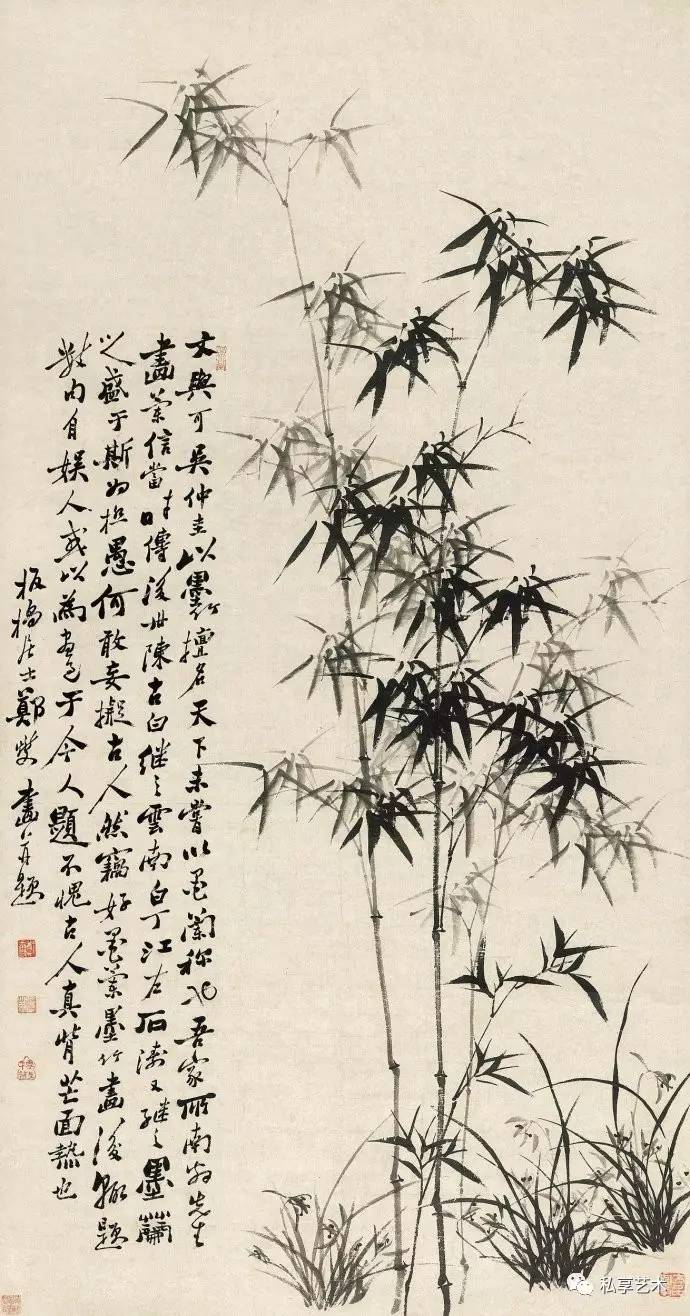 文與可吳仲圭以墨竹擅名天下未嘗以墨蘭称也吾家所南翁先生
畫蘭信當時傳後世陳古白継之雲南白丁江右石濤又継之墨蘭
之盛于斯為極愚何敢妄擬古人然竊好墨蘭墨竹畫後輒題
自娛人或以為畫于今人題不愧古人真背芒面熱也
板橋居士鄭燮畫并題
私享艺术